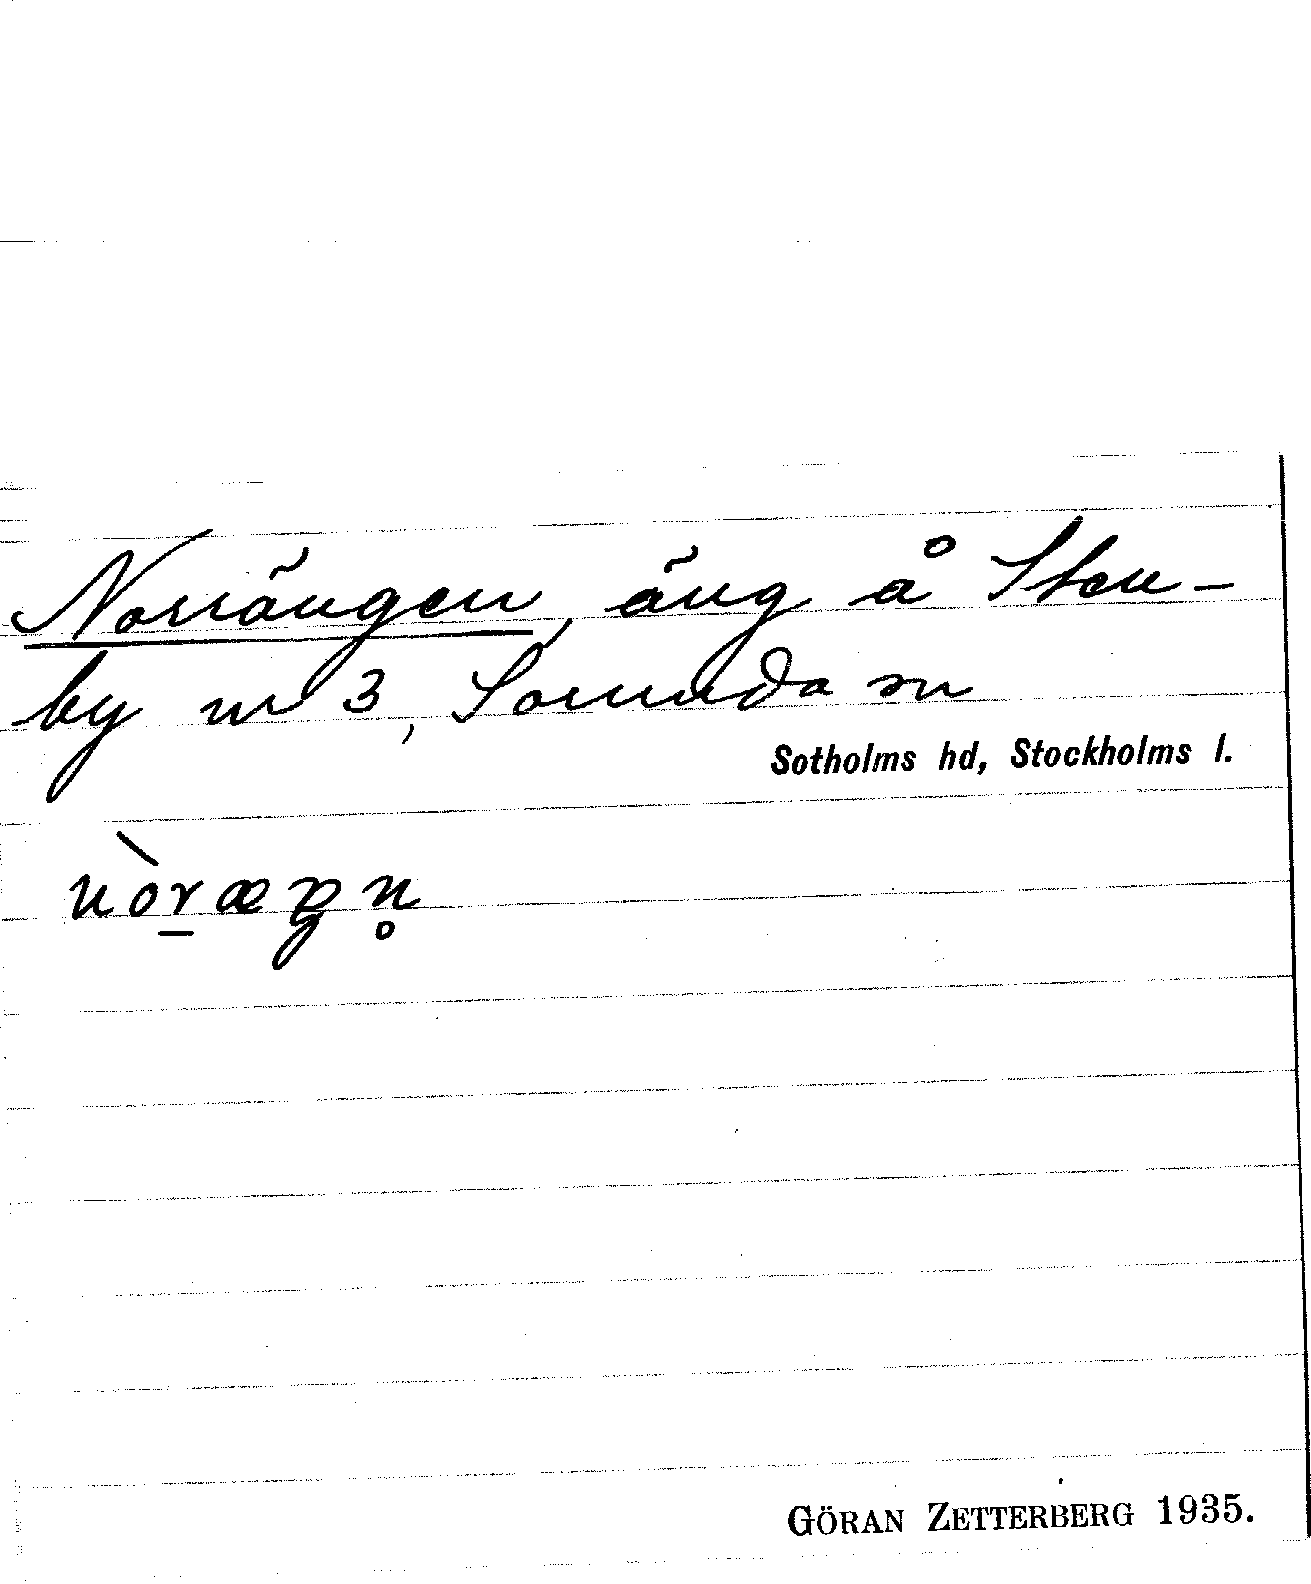 Norrängen, äng å Sten-
by nr 3, Sorunda sn
Sotholms hd, Stockholms l.
nòr̲æŋn̥
GÖRAN ZETTERBERG 1935.